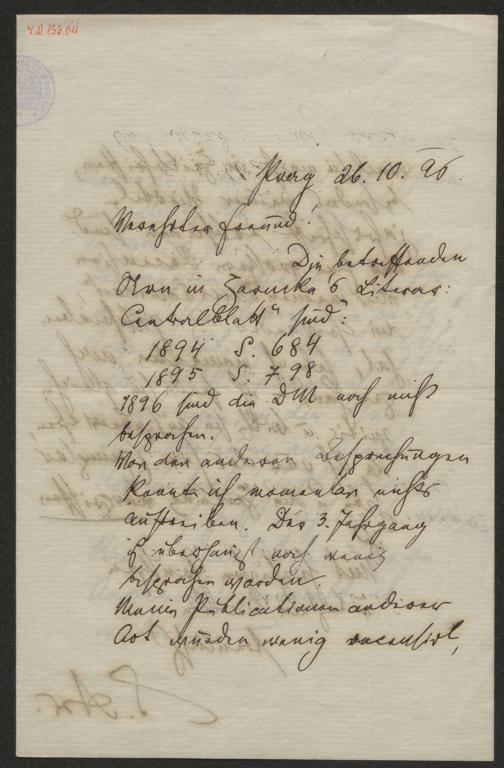 I.N. 133.011
Prag 26. 10. 96.
Verehrter Freund!
Die betreffenden
in Zarnckes Literar:
Centralblatt" sind:
1894 S. 684
1895 S. 798
1896 sind die DM noch nicht
besprochen.
Von den anderen Besprechungen
konnte ich momentan nichts
auftreiben. Der 3. Jahrgang
ist überhaupt noch wenig
besprochen worden.
Meine Publicationen anderer
Art wurden wenig recensirt,